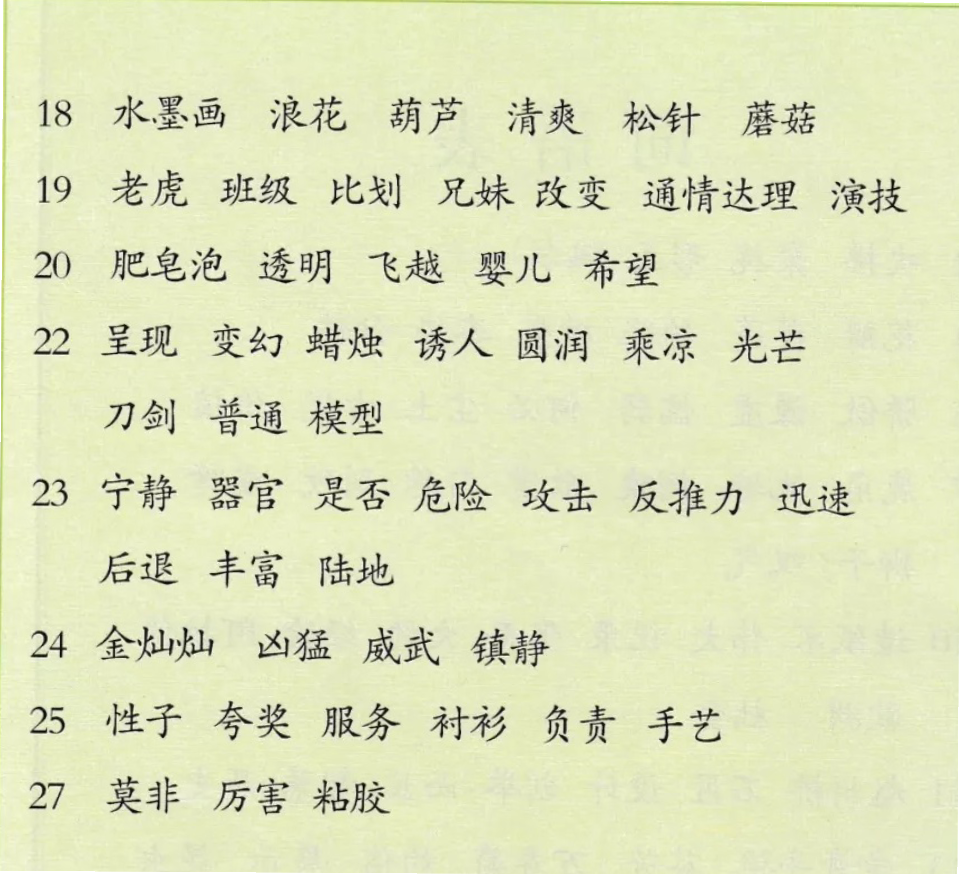 18 水墨画 浪花 葫芦 清爽 松针 蘑菇
19 老虎 班级 比划 兄妹 改变 通情达理 演技
20 肥皂泡 透明 飞越 婴儿 希望
22 呈现 变幻 蜡烛 诱人 圆润 乘凉 光芒
刀剑 普通 模型
23 宁静 器官 是否 危险 攻击 反推力 迅速
后退 丰富 陆地
24 金灿灿 凶猛 威武 镇静
25 性子 夸奖 服务 衬衫 负责 手艺
27 莫非 厉害 粘胶